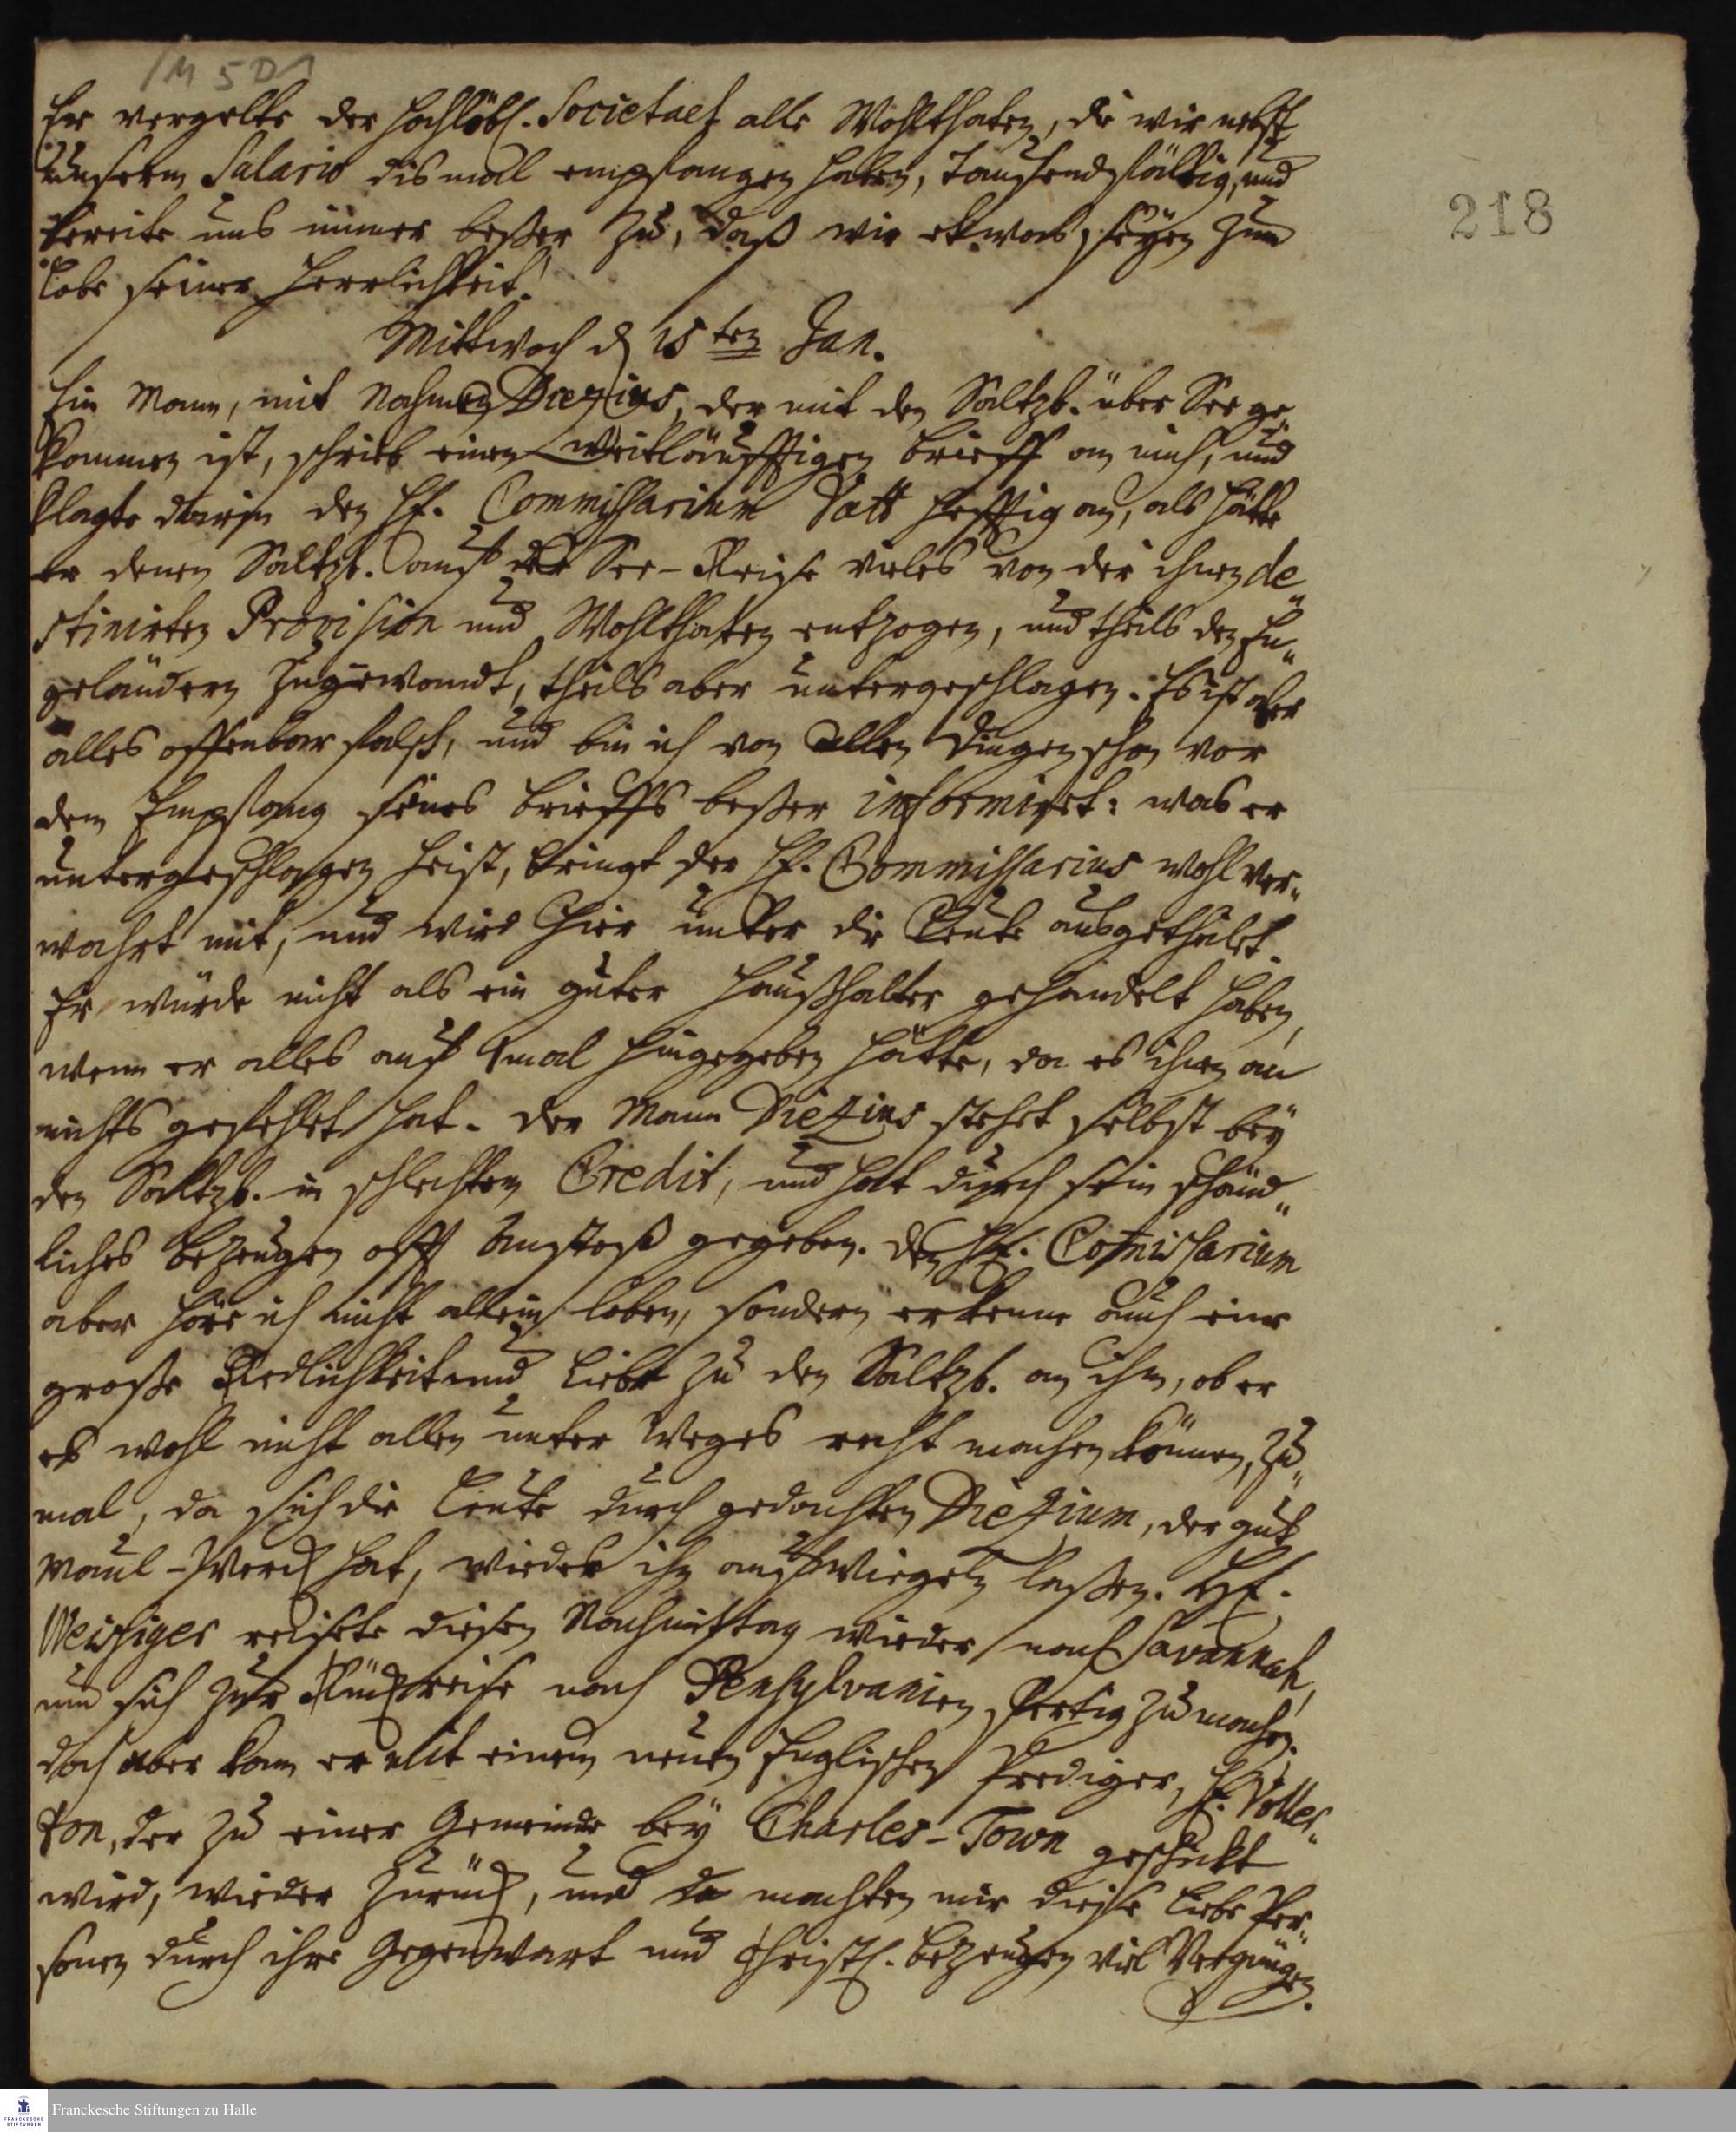 /M 5 D 1
218
Er vergelte der hochlöbl. Societaet alle Wohlthaten, die wir nebst
unserm Salario dismal empfangen haben, tausendfältig, und
bereite uns immer beßer zu, daß wir etwas seyen zum
Lobe seiner Herrlichkeit.
Mittwoch d 15ten Jan.
Ein Mann, mit Nahmen Diezius, der mit den Saltzb. über See ge„
kommen ist, schrieb einen weitläufftigen Brieff an mich, und
klagte darin den H. Commissarium Vatt hefftig an, als hätte
er denen Saltzb. auf der See-Reise vieles von der ihnen de„
stinirten Provision und Wohlthaten entzogen, und theils den En„
geländern zugewandt, theils aber untergeschlagen. Es ist aber
alles offenbar falsch, und bin ich von allen Dingen schon vor
dem Empfang seines Brieffs beßer informiret: was er
untergeschlagen heist, bringt der H. Commissarius wohl ver„
wahrt mit, und wird hier unter die Leute ausgetheilet.
Er würde nicht als ein guter Haußhalter gehandelt haben,
wenn er alles auf 1mal hingegeben hätte, da es ihnen an
nichts gefehlet hat. Der Mann Diezius stehet selbst bey
den Saltzb. in schlechtem Credit, und hat durch sein schänd„
liches Bezeugen offt Anstoß gegeben. Den H. Comissarium
aber höre ich nicht allein loben, sondern erkenne auch eine
große Redlichkeit und Liebe zu den Saltzb. an ihm, ob er
es wohl nicht allen unter Weges recht machen können, zu„
mal, da sich die Leute durch gedachten Diezium, der gut
Maul-Werck hat, wieder ihn aufwiegeln laßen. H.
Weisiger reisete diesen Nachmittag wieder nach Savannah,
um sich zur Rückreise nach Pensylvanien fertig zu machen.
doch aber kam er mit einem neuen Englischen Prediger, H.
ton, der zu einer Gemeinde bey Charles-Town geschickt
wird, wieder zurück, und da machten mir diese liebe Per„
sonen durch ihre Gegenwart und Christl. Bezeugen viel Vergnügen.
FRANCKESCHE STIFTUNGEN
Franckesche Stiftungen zu Halle